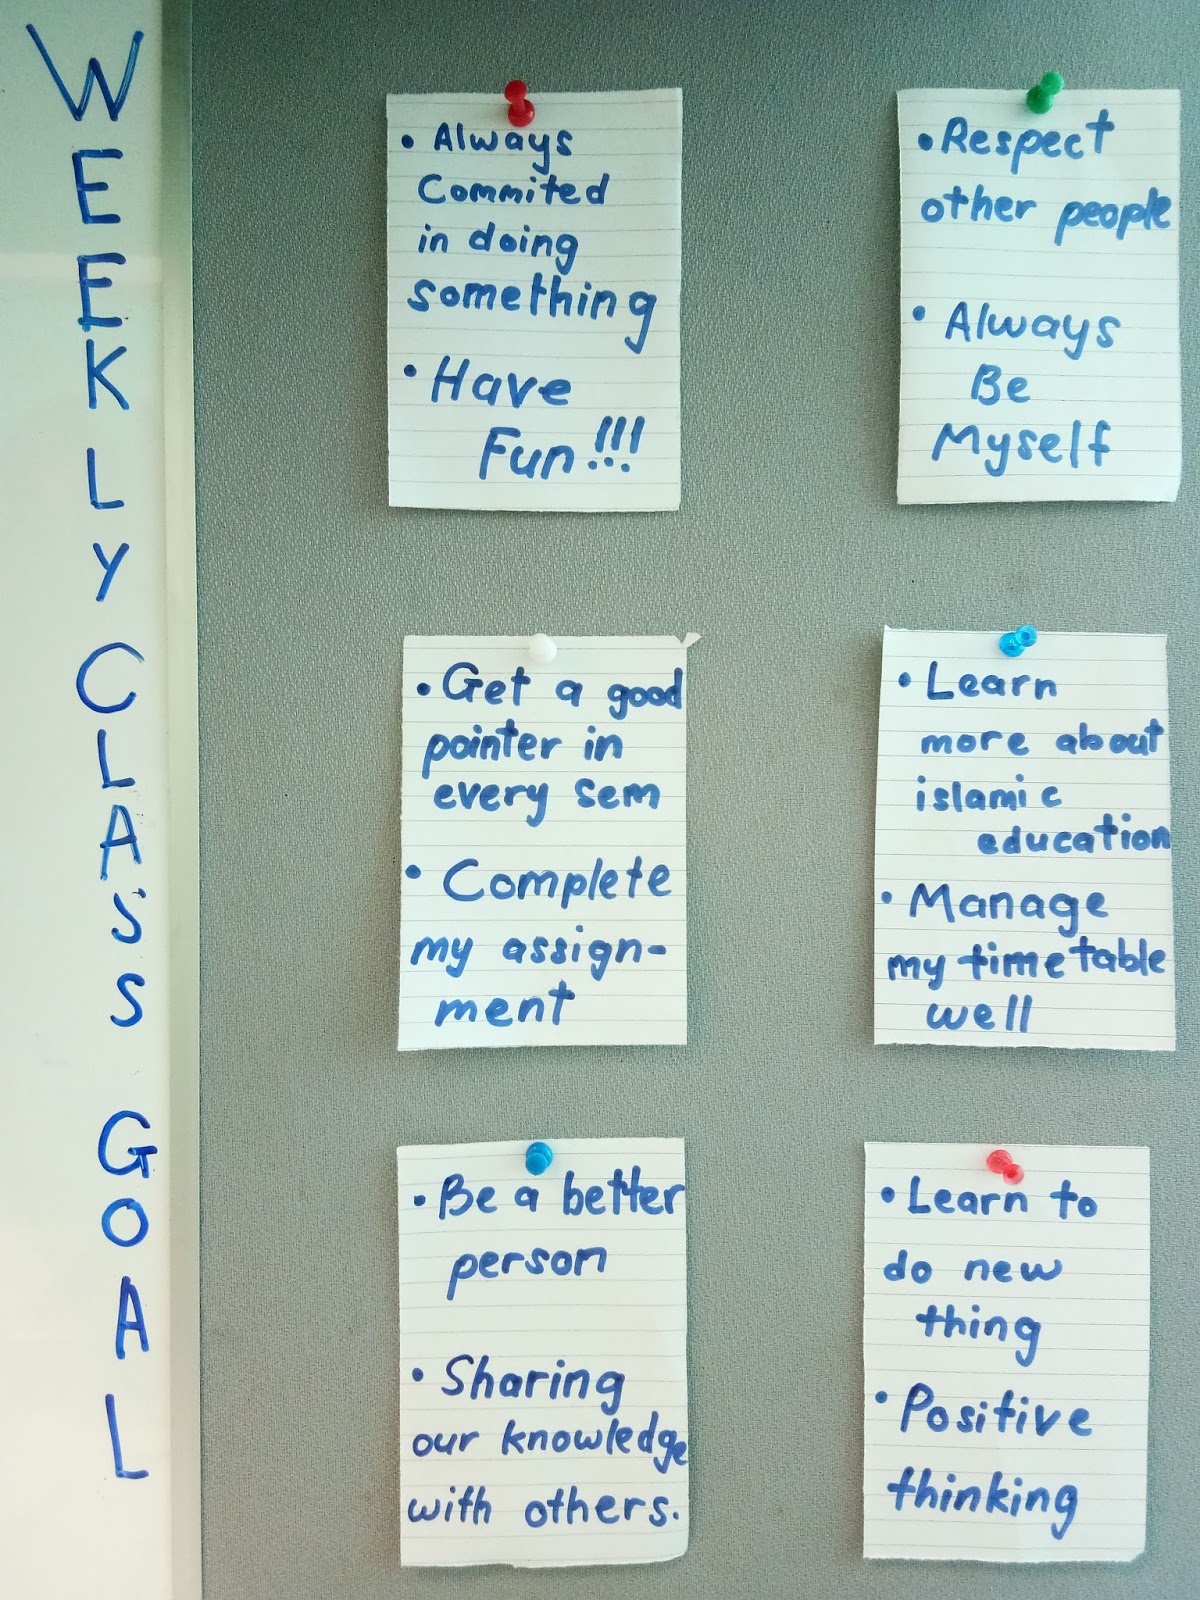 WEEKLY CLASS GOAL
• Always
Commited
in doing
something
• Have
Fun!!!
• Respect
other people
• Always
Be
Myself
• Get a good
pointer in
every sem
• Complete
my assign-
ment
• Learn
more about
islamic
education
• Manage
my timetable
well
• Be a better
person
• Sharing
our knowledge
with others.
• Learn to
do new
thing
• Positive
thinking